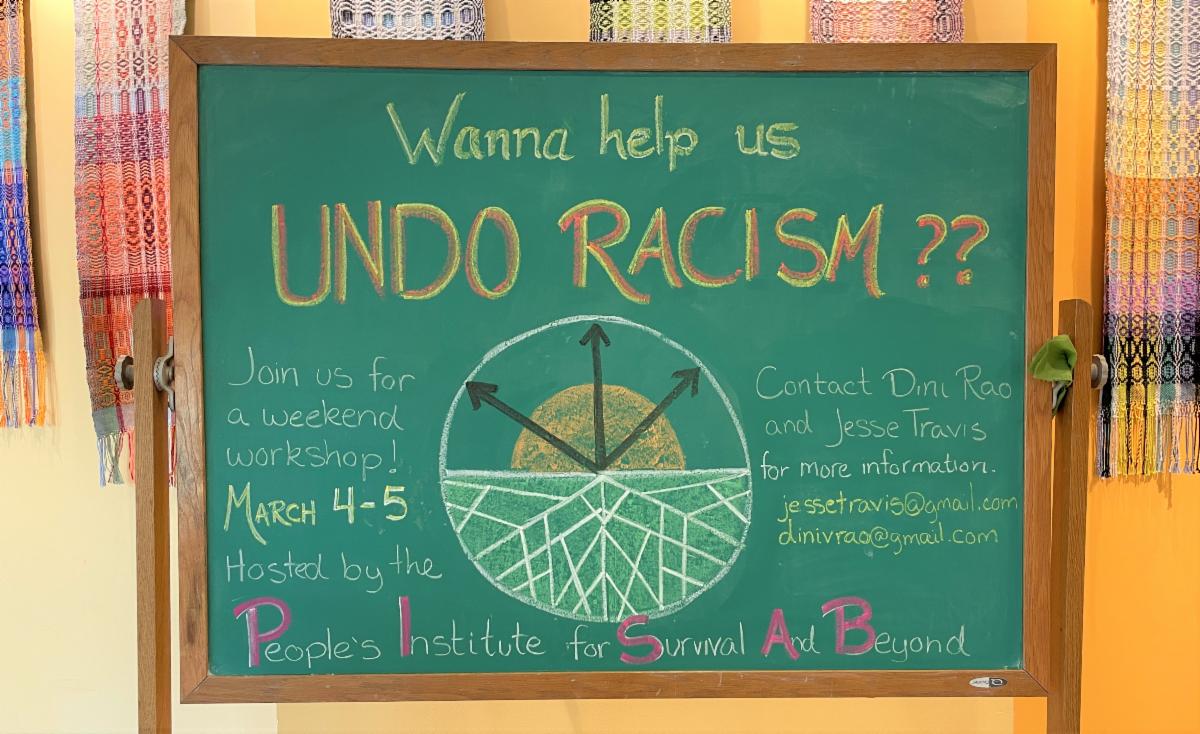 Wanna help us
UNDO RACISM ??
Join us for
a weekend
workshop!
MARCH 4-5
Hosted by the
People's Institute for Survival And Beyond
Contact Dini Rao
and Jesse Travis
for more information.
jessetravis@gmail.com
dinivrao@gmail.com